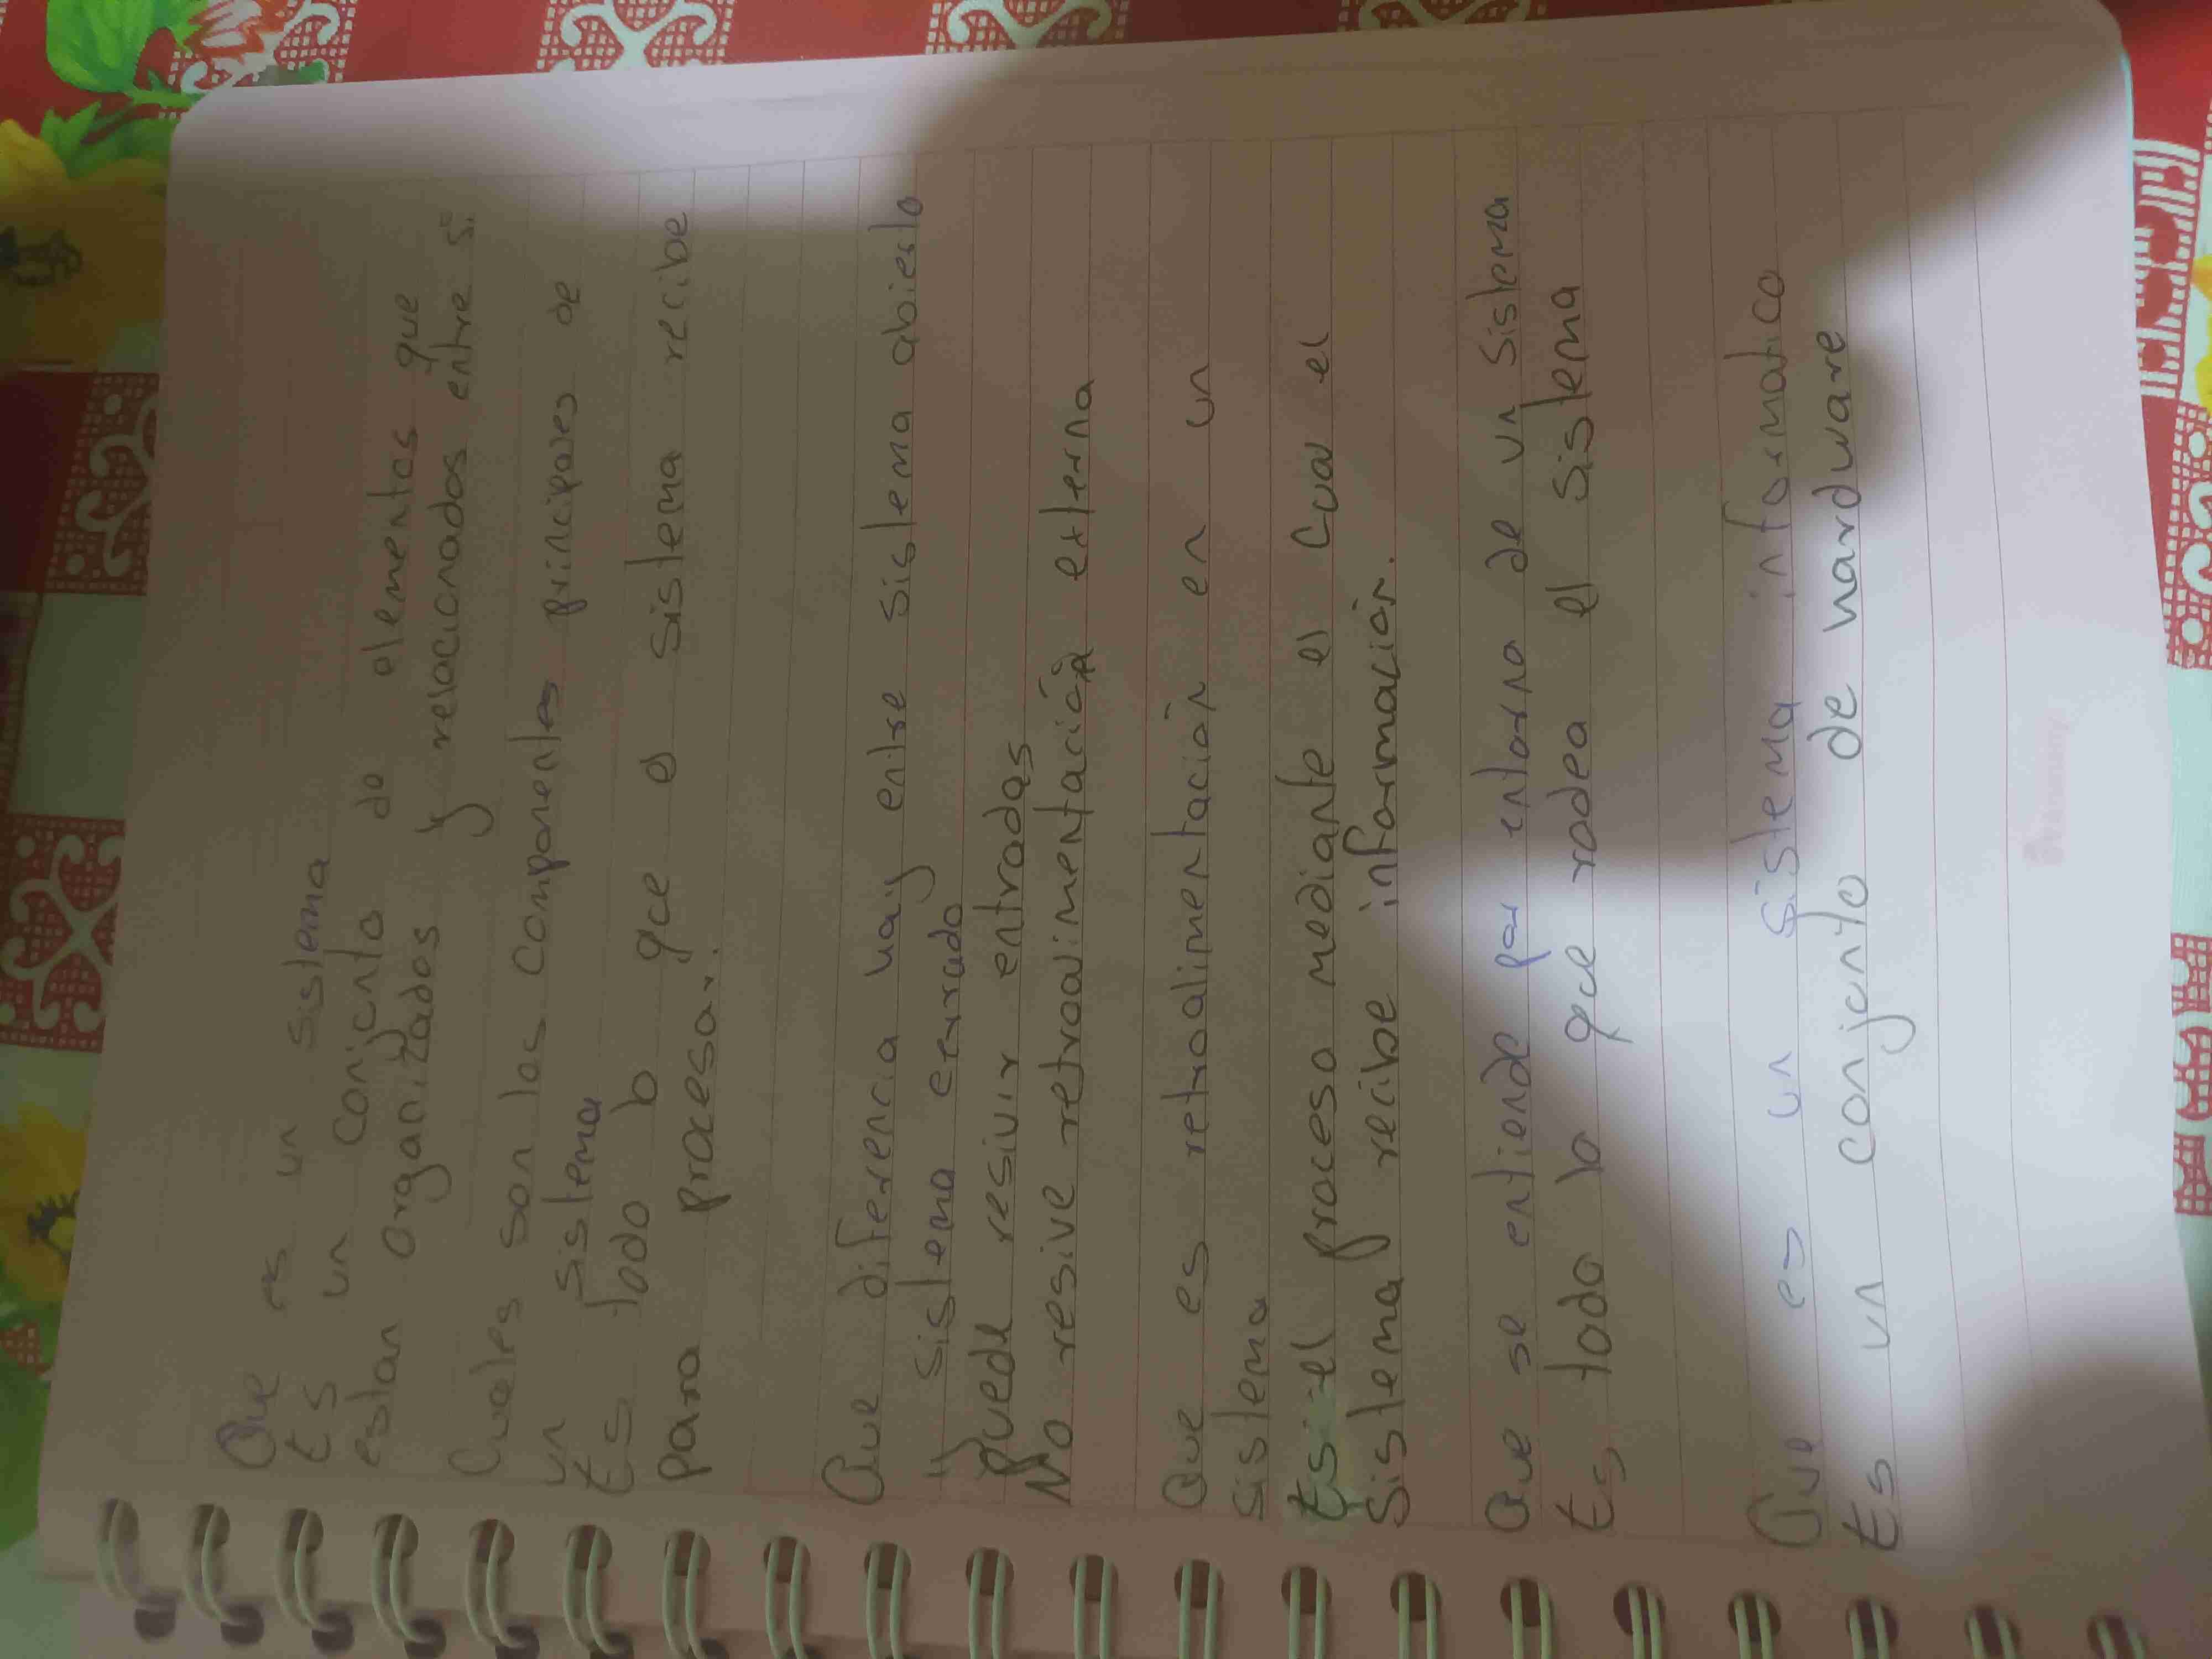 Que es un sistema
Es un conjunto de elementos que
estan organizados y relacionados entre si.
Cuales son los componentes principales de
un sistema
Es todo lo que el sistema recibe
para procesar.
Que diferencia hay entre sistema abierto
y sistema cerrado
Puede resivir entradas
No resive retroalimentación externa
Que es retroalimentación en un
sistema
Es el proceso mediante el cual el
Sistema recibe información.
Que se entiende por entorno de un sistema
Es todo lo que rodea el sistema
Que es un sistema informatico
Es un conjunto de hardware